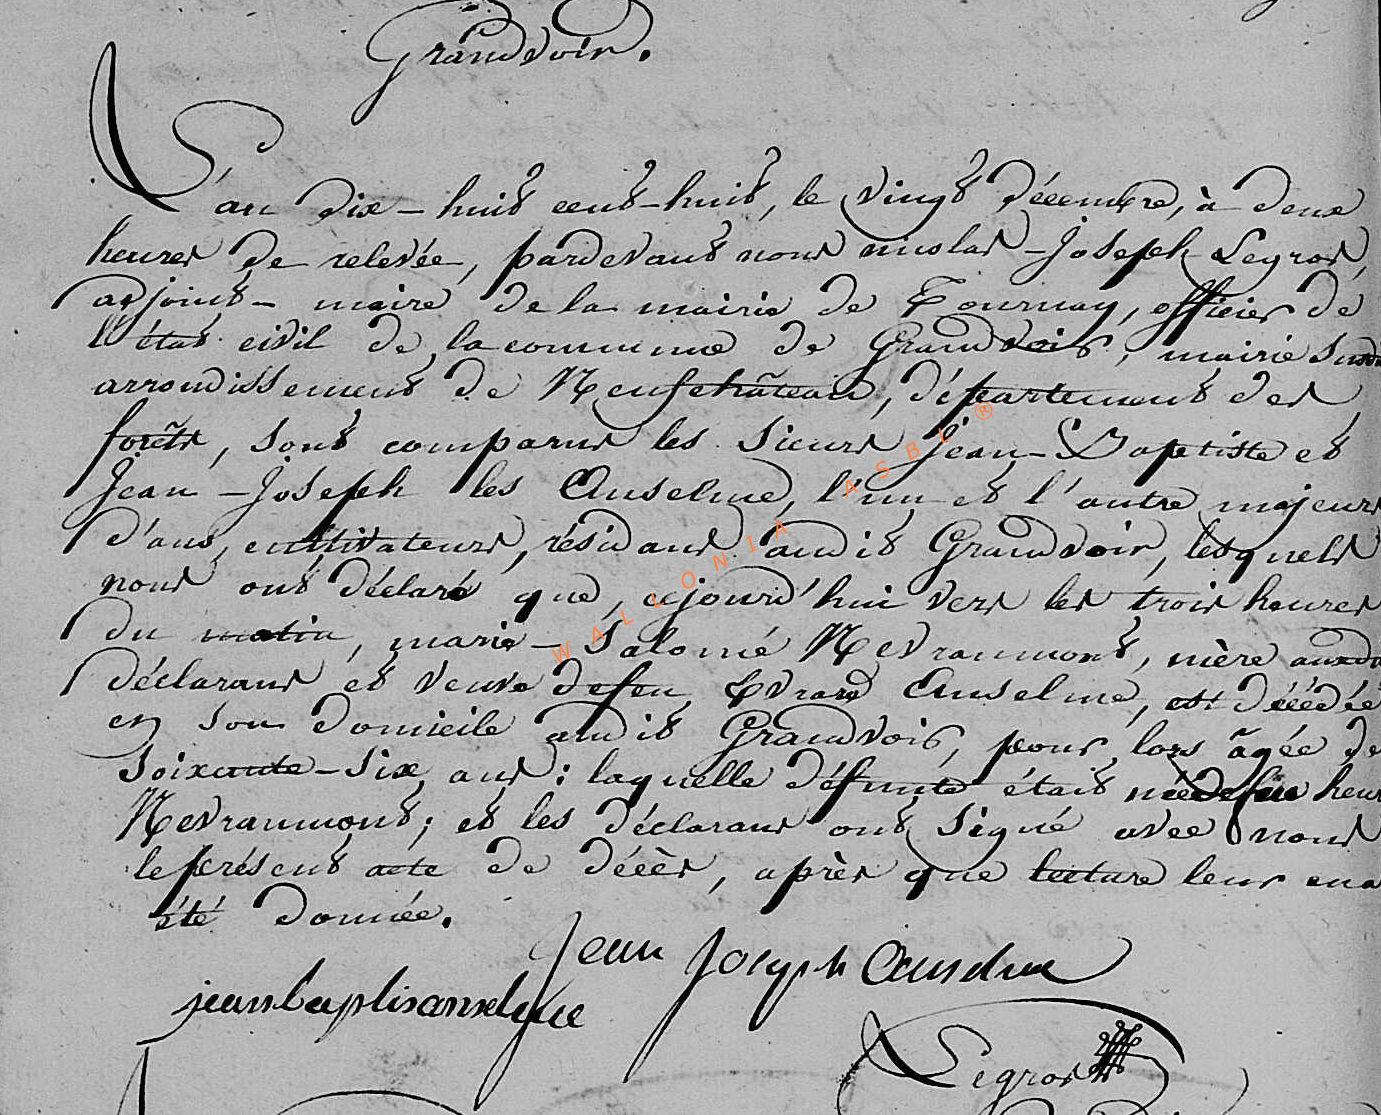 Grandvoir.
L'an dix-huit cent-huit, le vingt décembre, à deux
heures de relevée, pardevant nous nicolas-Joseph Legros,
adjoint-maire de la mairie de Tournay, officier de
l'état civil de la commune de Grandvoir, mairie susd.
arrondissement de Neufchâteau, département des
forêts, sont comparus les sieurs Jean-Baptiste et
Jean-Joseph les Anselme, l'un et l'autre majeurs
d'ans, cultivateurs, résidans audit Grandvoir, lesquels
nous ont déclaré que, cejourd'hui vers les trois heures
du matin, marie-Salomé Nevraumont, mère auxd.
déclarans et veuve de feu Evrard Anselme, est décédée
en son domicile audit Grandvoir, pour lors âgée de
soixante-six ans: laquelle défunte était née de feu henri
Nevraumont; et les déclarans ont signé avec nous
le présent acte de décès, après que lecture leur en a
été donnée.
Jean Joseph Anselme
jean baptis anselme
Legros
WALLONIA ASBL ®